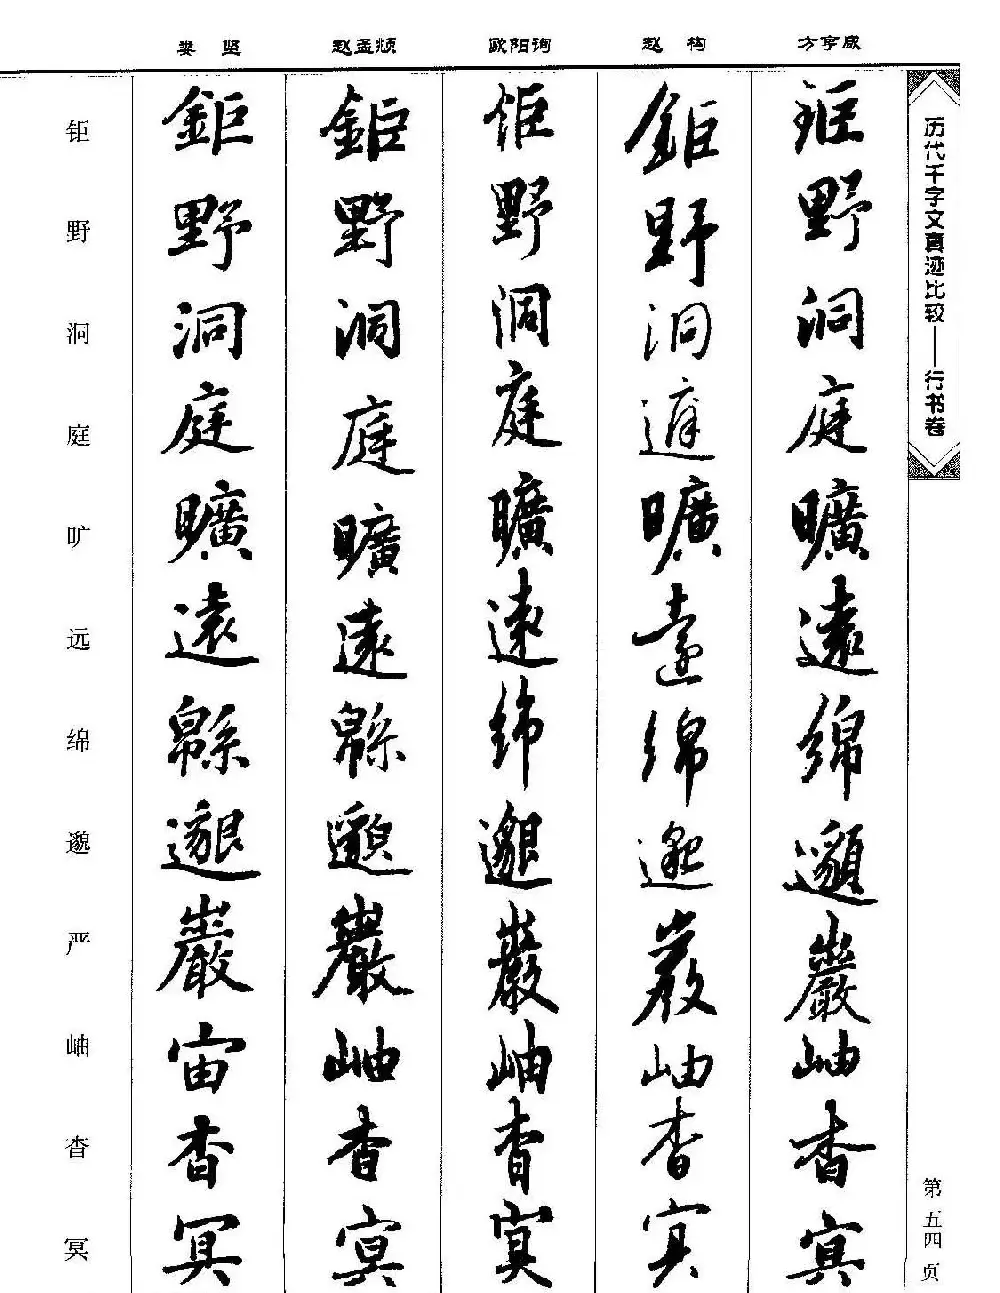 历代千字文真迹比较——行书卷
第五四页
方亨咸
鉅野洞庭曠遠綿邈巖岫杳冥
赵构
鉅野洞庭曠遠綿邈巖岫杳冥
欧阳询
鉅野洞庭曠遠綿邈巖岫杳冥
赵孟頫
鉅野洞庭曠遠緜邈巖岫杳冥
娄坚
鉅野洞庭曠遠緜邈巖宙杳冥
钜野洞庭旷远绵邈严岫杳冥